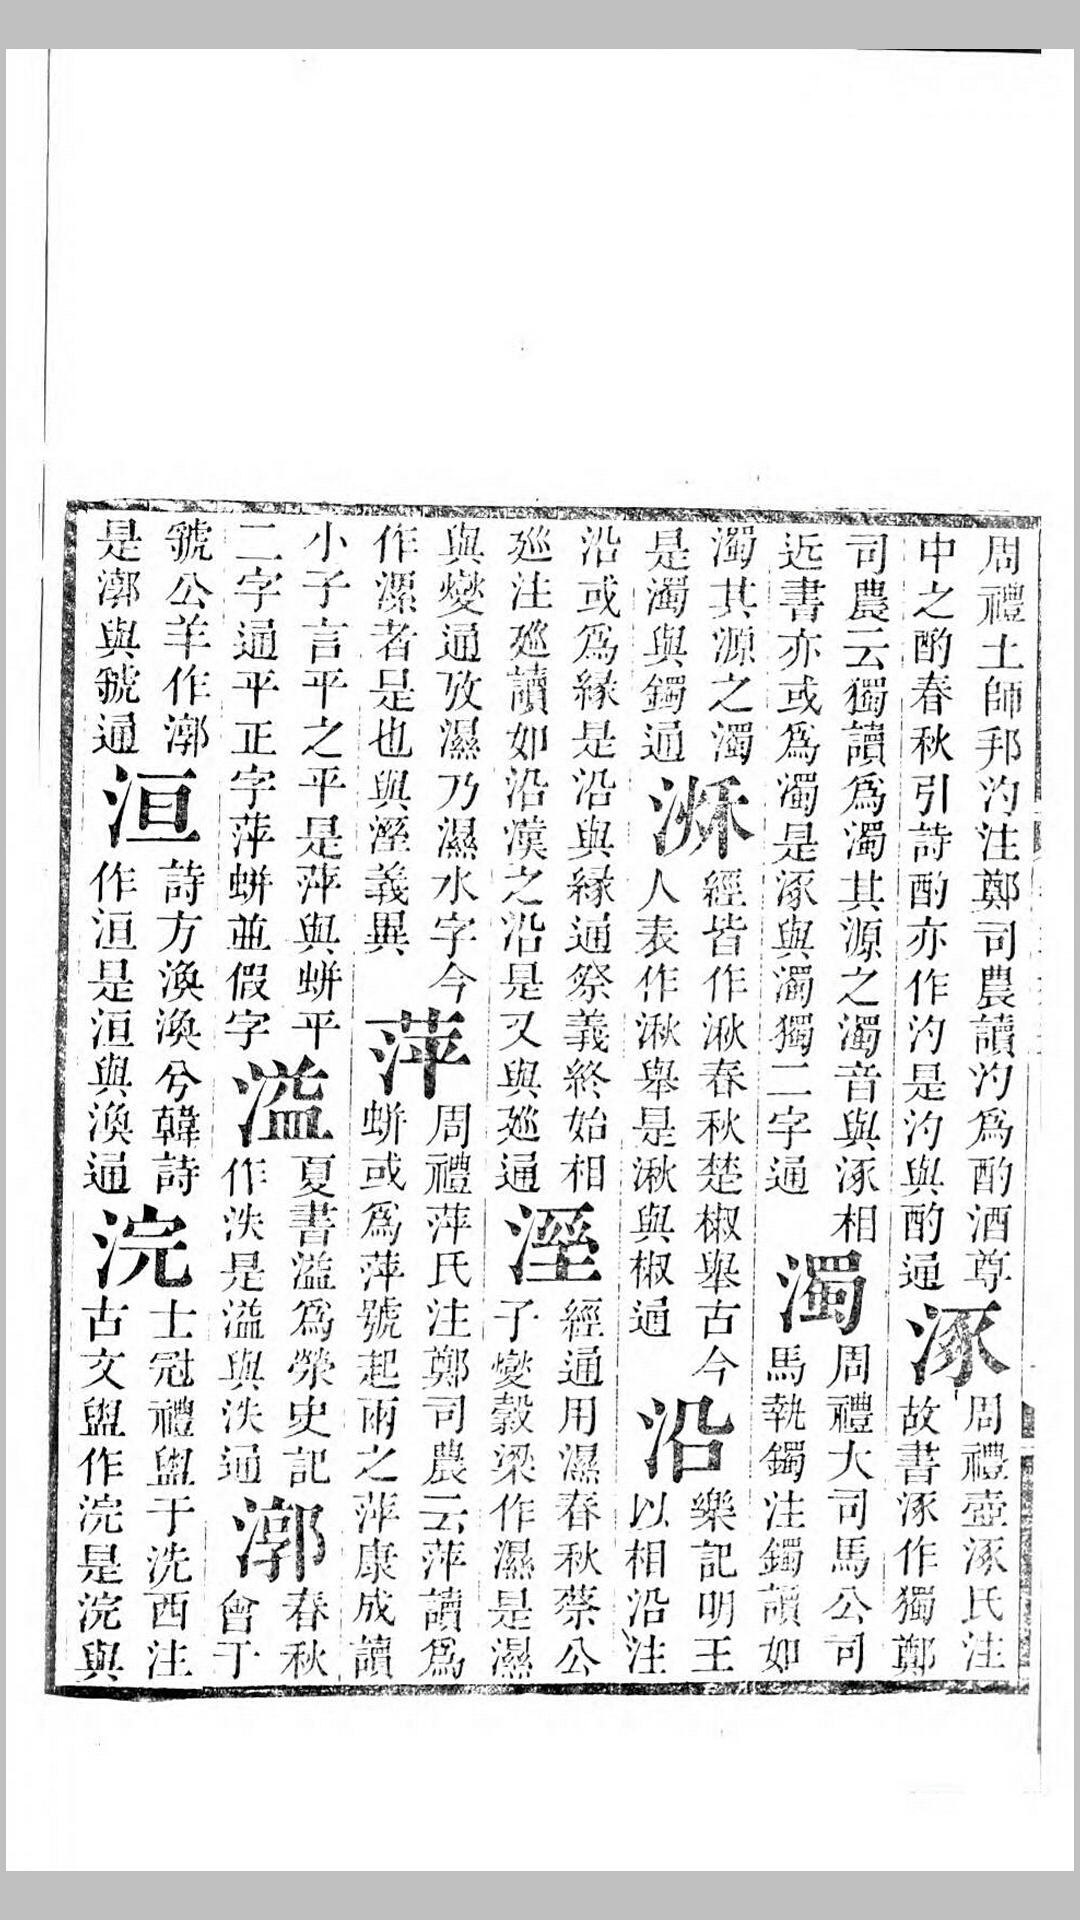 周禮士師邦汋注鄭司農讀汋爲酌酒尊
中之酌春秋引詩酌亦作汋是汋與酌通
涿
周禮壺涿氏注
故書涿作獨鄭
司農云獨讀爲濁其源之濁音與涿相
近書亦或爲濁是涿與濁獨二字通
濁
周禮大司馬公司
馬執鐲注鐲讀如
濁其源之濁
是濁與鐲通
湫
經皆作湫春秋楚椒舉古今
人表作湫舉是湫與椒通
沿
樂記明王
以相沿注
沿或爲緣是沿與緣通祭義終始相
巡注巡讀如沿漢之沿是又與巡通
溼
經通用濕春秋蔡公
子燮穀梁作濕是濕
與燮通攷濕乃濕水字今
作漯者是也與溼義異
萍
周禮萍氏注鄭司農云萍讀爲
蛢或爲萍號起雨之萍康成讀
小子言平之平是萍與蛢平
二字通平正字萍蛢並假字
溢
夏書溢爲滎史記
作泆是溢與泆通
漷
春秋
會于
虢公羊作漷
是漷與虢通
洹
詩方渙渙兮韓詩
作洹是洹與渙通
浣
士冠禮盥于洗西注
古文盥作浣是浣與